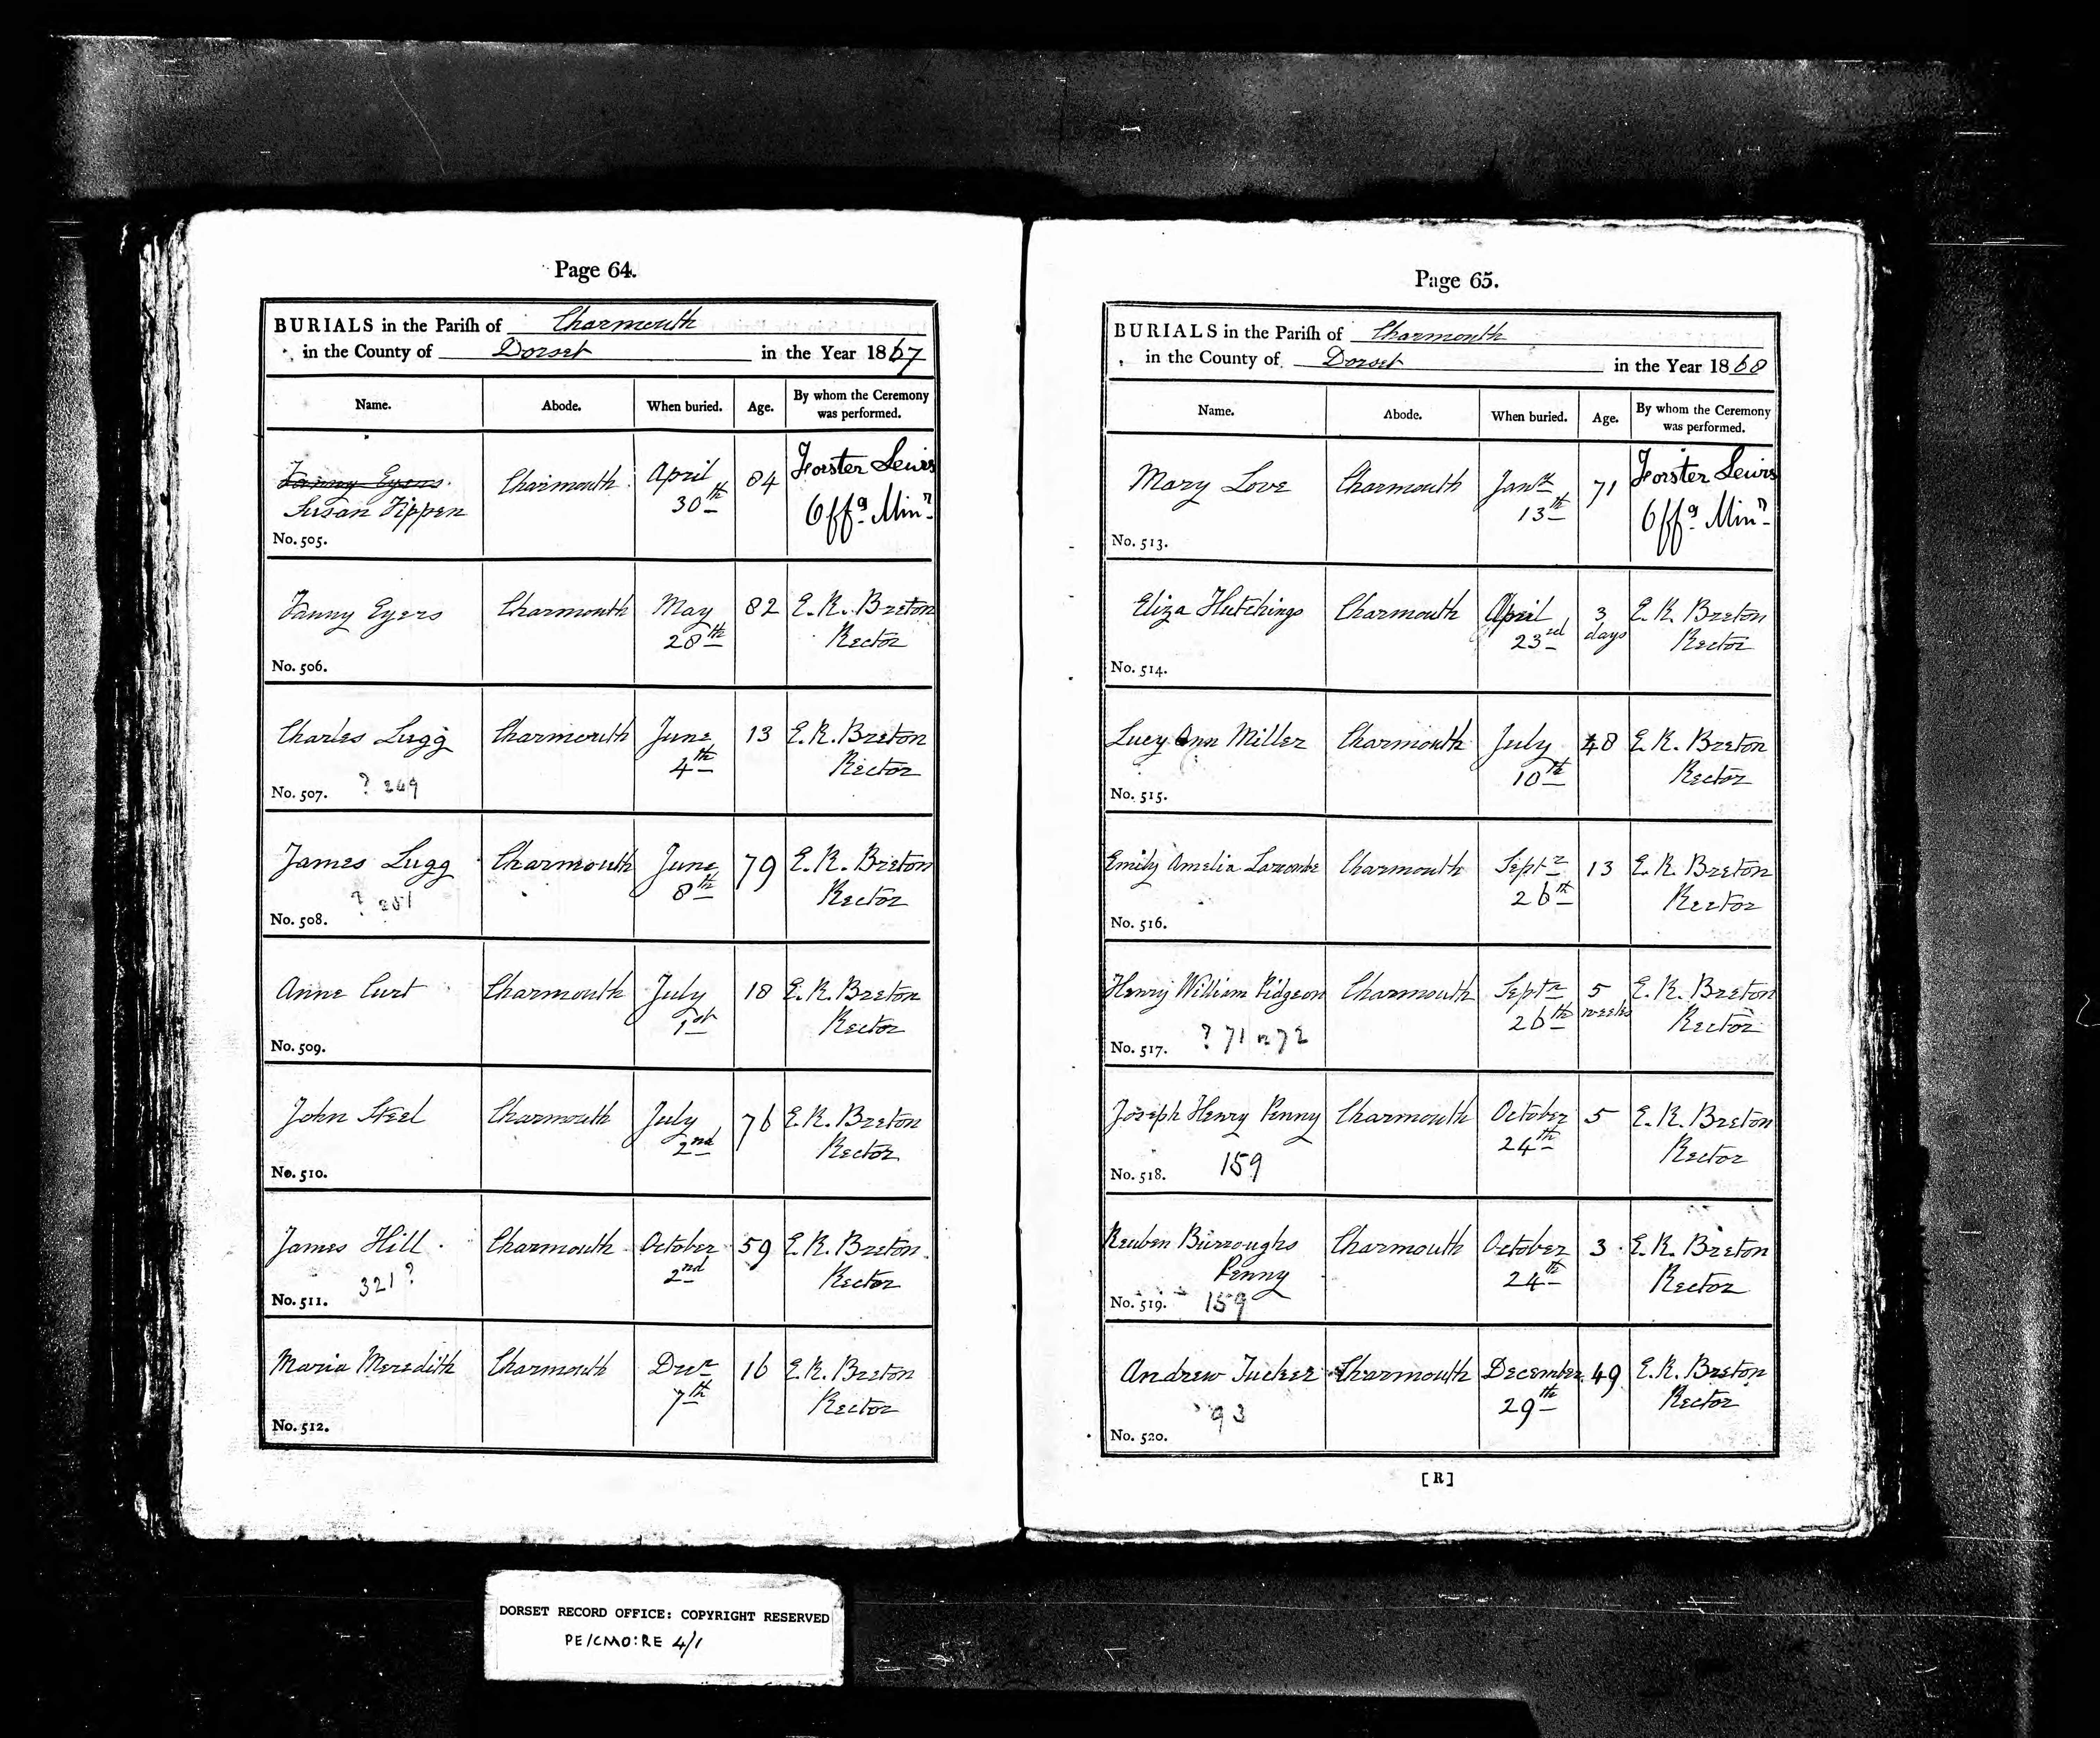 Page 64.
BURIALS in the Parish of Charmouth
in the County of Dorset in the Year 1867
Name. Abode. When buried. Age. By whom the Ceremony was performed.
Fanny Eyers.
Susan Tippen Charmouth April 30th 84 Forster Lewis Offg Minr
No. 505.
Fanny Eyers Charmouth May 28th 82 E. R. Breton Rector
No. 506.
Charles Lugg Charmouth June 4th 13 E. R. Breton Rector
No. 507. ? 249
James Lugg Charmouth June 8th 79 E. R. Breton Rector
? 251
No. 508.
Anne Curt Charmouth July 1st 18 E. R. Breton Rector
No. 509.
John Steel Charmouth July 2nd 76 E. R. Breton Rector
No. 510.
James Hill Charmouth October 2nd 59 E. R. Breton Rector
321 ?
No. 511.
Maria Meredith Charmouth Decr 7th 16 E. R. Breton Rector
No. 512.
Page 65.
BURIALS in the Parish of Charmouth
in the County of Dorset in the Year 1868
Name. Abode. When buried. Age. By whom the Ceremony was performed.
Mary Love Charmouth Jany 13th 71 Forster Lewis Offg Minr
No. 513.
Eliza Hutchings Charmouth April 23rd 3 days E. R. Breton Rector
No. 514.
Lucy Ann Miller Charmouth July 10th 48 E. R. Breton Rector
No. 515.
Emily Amelia Larcombe Charmouth Septr 26th 13 E. R. Breton Rector
No. 516.
Henry William Pidgeon Charmouth Septr 26th 5 weeks E. R. Breton Rector
No. 517. ? 71 or 72
Joseph Henry Penny Charmouth October 24th 5 E. R. Breton Rector
No. 518. 159
Reuben Burroughs Penny Charmouth October 24th 3 E. R. Breton Rector
No. 519. 159
Andrew Tucker Charmouth December 29th 49 E. R. Breton Rector
93
No. 520.
[R]
DORSET RECORD OFFICE: COPYRIGHT RESERVED
PE/CMO:RE 4/1